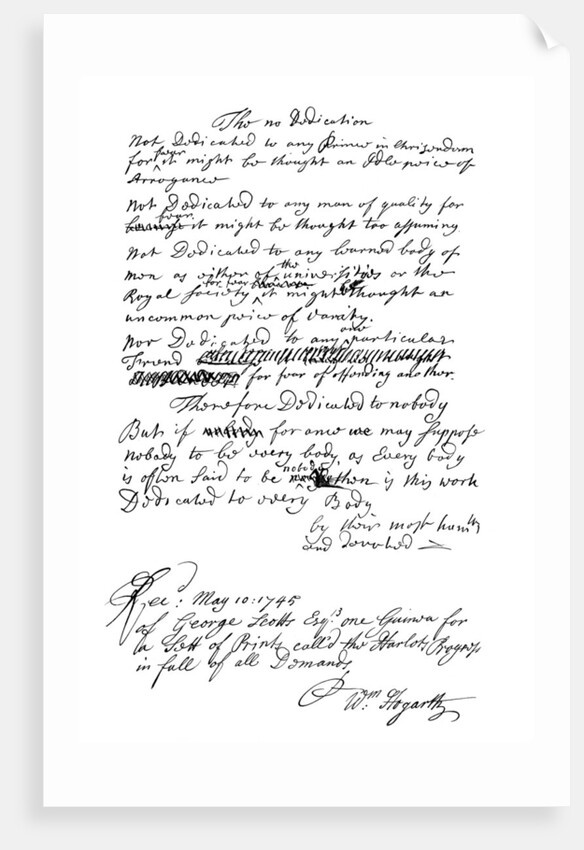 The no Dedication
Not Dedicated to any Prince in Chrisendom
for fear it might be thought an Idle peice of
Arrogance
Not Dedicated to any man of quality for
fear it might be thought too assuming
Not Dedicated to any learned body of
men as either of the universities or the
Royal Society for fear it might be thought an
uncommon peice of Vanity.
Nor Dedicated to any one particular
Friend
for fear of offending another.
Therefore Dedicated to nobody
But if for once we may suppose
nobody to be every body as Every body
is often said to be nobody then is this work
Dedicated to every Body
by their most humble
and devoted
Rec: May 10: 1745
of George Scotts Esq one Guinea for
a Sett of Prints call'd the Harlots Progress
in full of all Demands,
Wm Hogarth